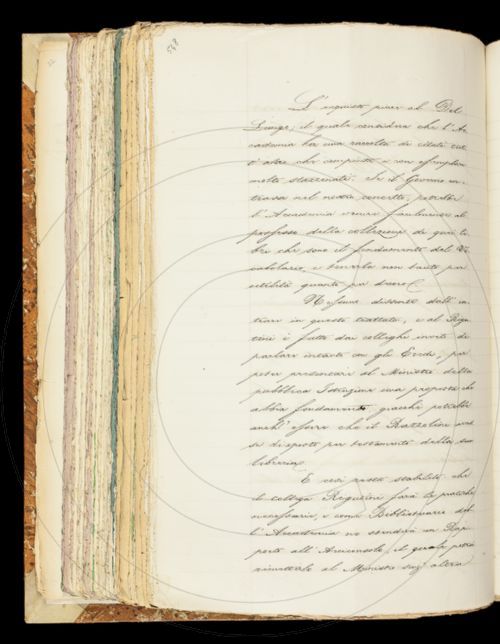 548
L'acquisto piace al Del
Lungo, il quale considera che l'Ac
cademia ha una raccolta di citati tut
t'altro che compiuta e con esemplari
molto scadenti. Se il Governo en-
trasse nel nostro concetto, potrebbe
l'Accademia venire facilmente al
possesso della collezione di quei li
bri che sono il fondamento del Vo
cabolario, e tenerla non tanto per
utilità quanto per decoro.
Nessuno dissente dall'en
trare in queste trattative, e al Rigu
tini è fatto dai colleghi invito di
parlare intanto con gli Eredi, per
poter presentare al Ministro della
pubblica Istruzione una proposta che
abbia fondamento, giacchè potrebbe
anch'essere che il Bazzolini aves
se disposto per testamento della sua
libreria.
E così resta stabilito che
il collega Rigutini farà le pratiche
necessarie, e come Bibliotecario del
l'Accademia ne stenderà un Rap
porto all'Arciconsolo, il quale potrà
rimetterlo al Ministro senz'altra